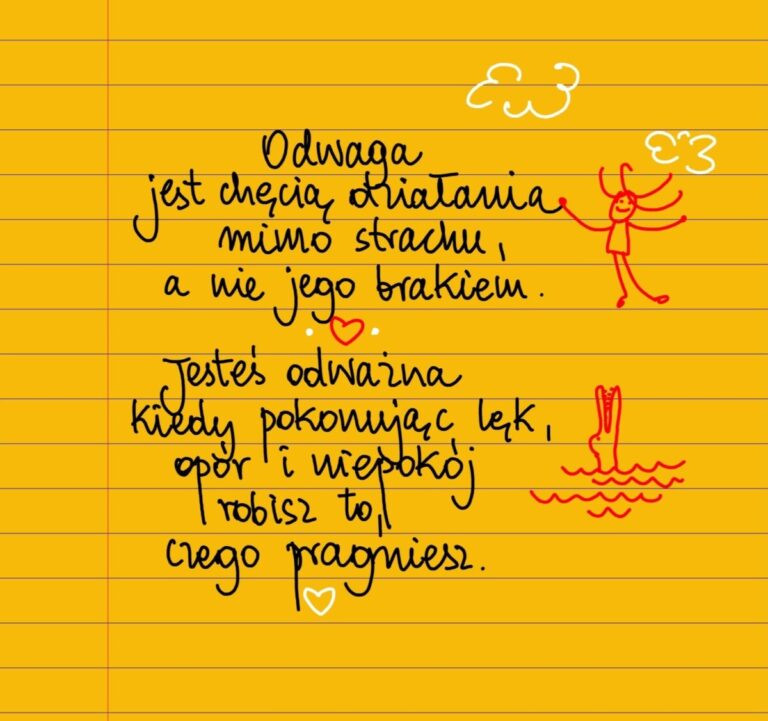 Odwaga
jest chęcią działania
mimo strachu,
a nie jego brakiem.
Jesteś odważna
kiedy pokonując lęk,
opór i niepokój
robisz to,
czego pragniesz.